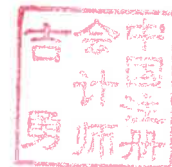 中国注册
会计师
吉勇